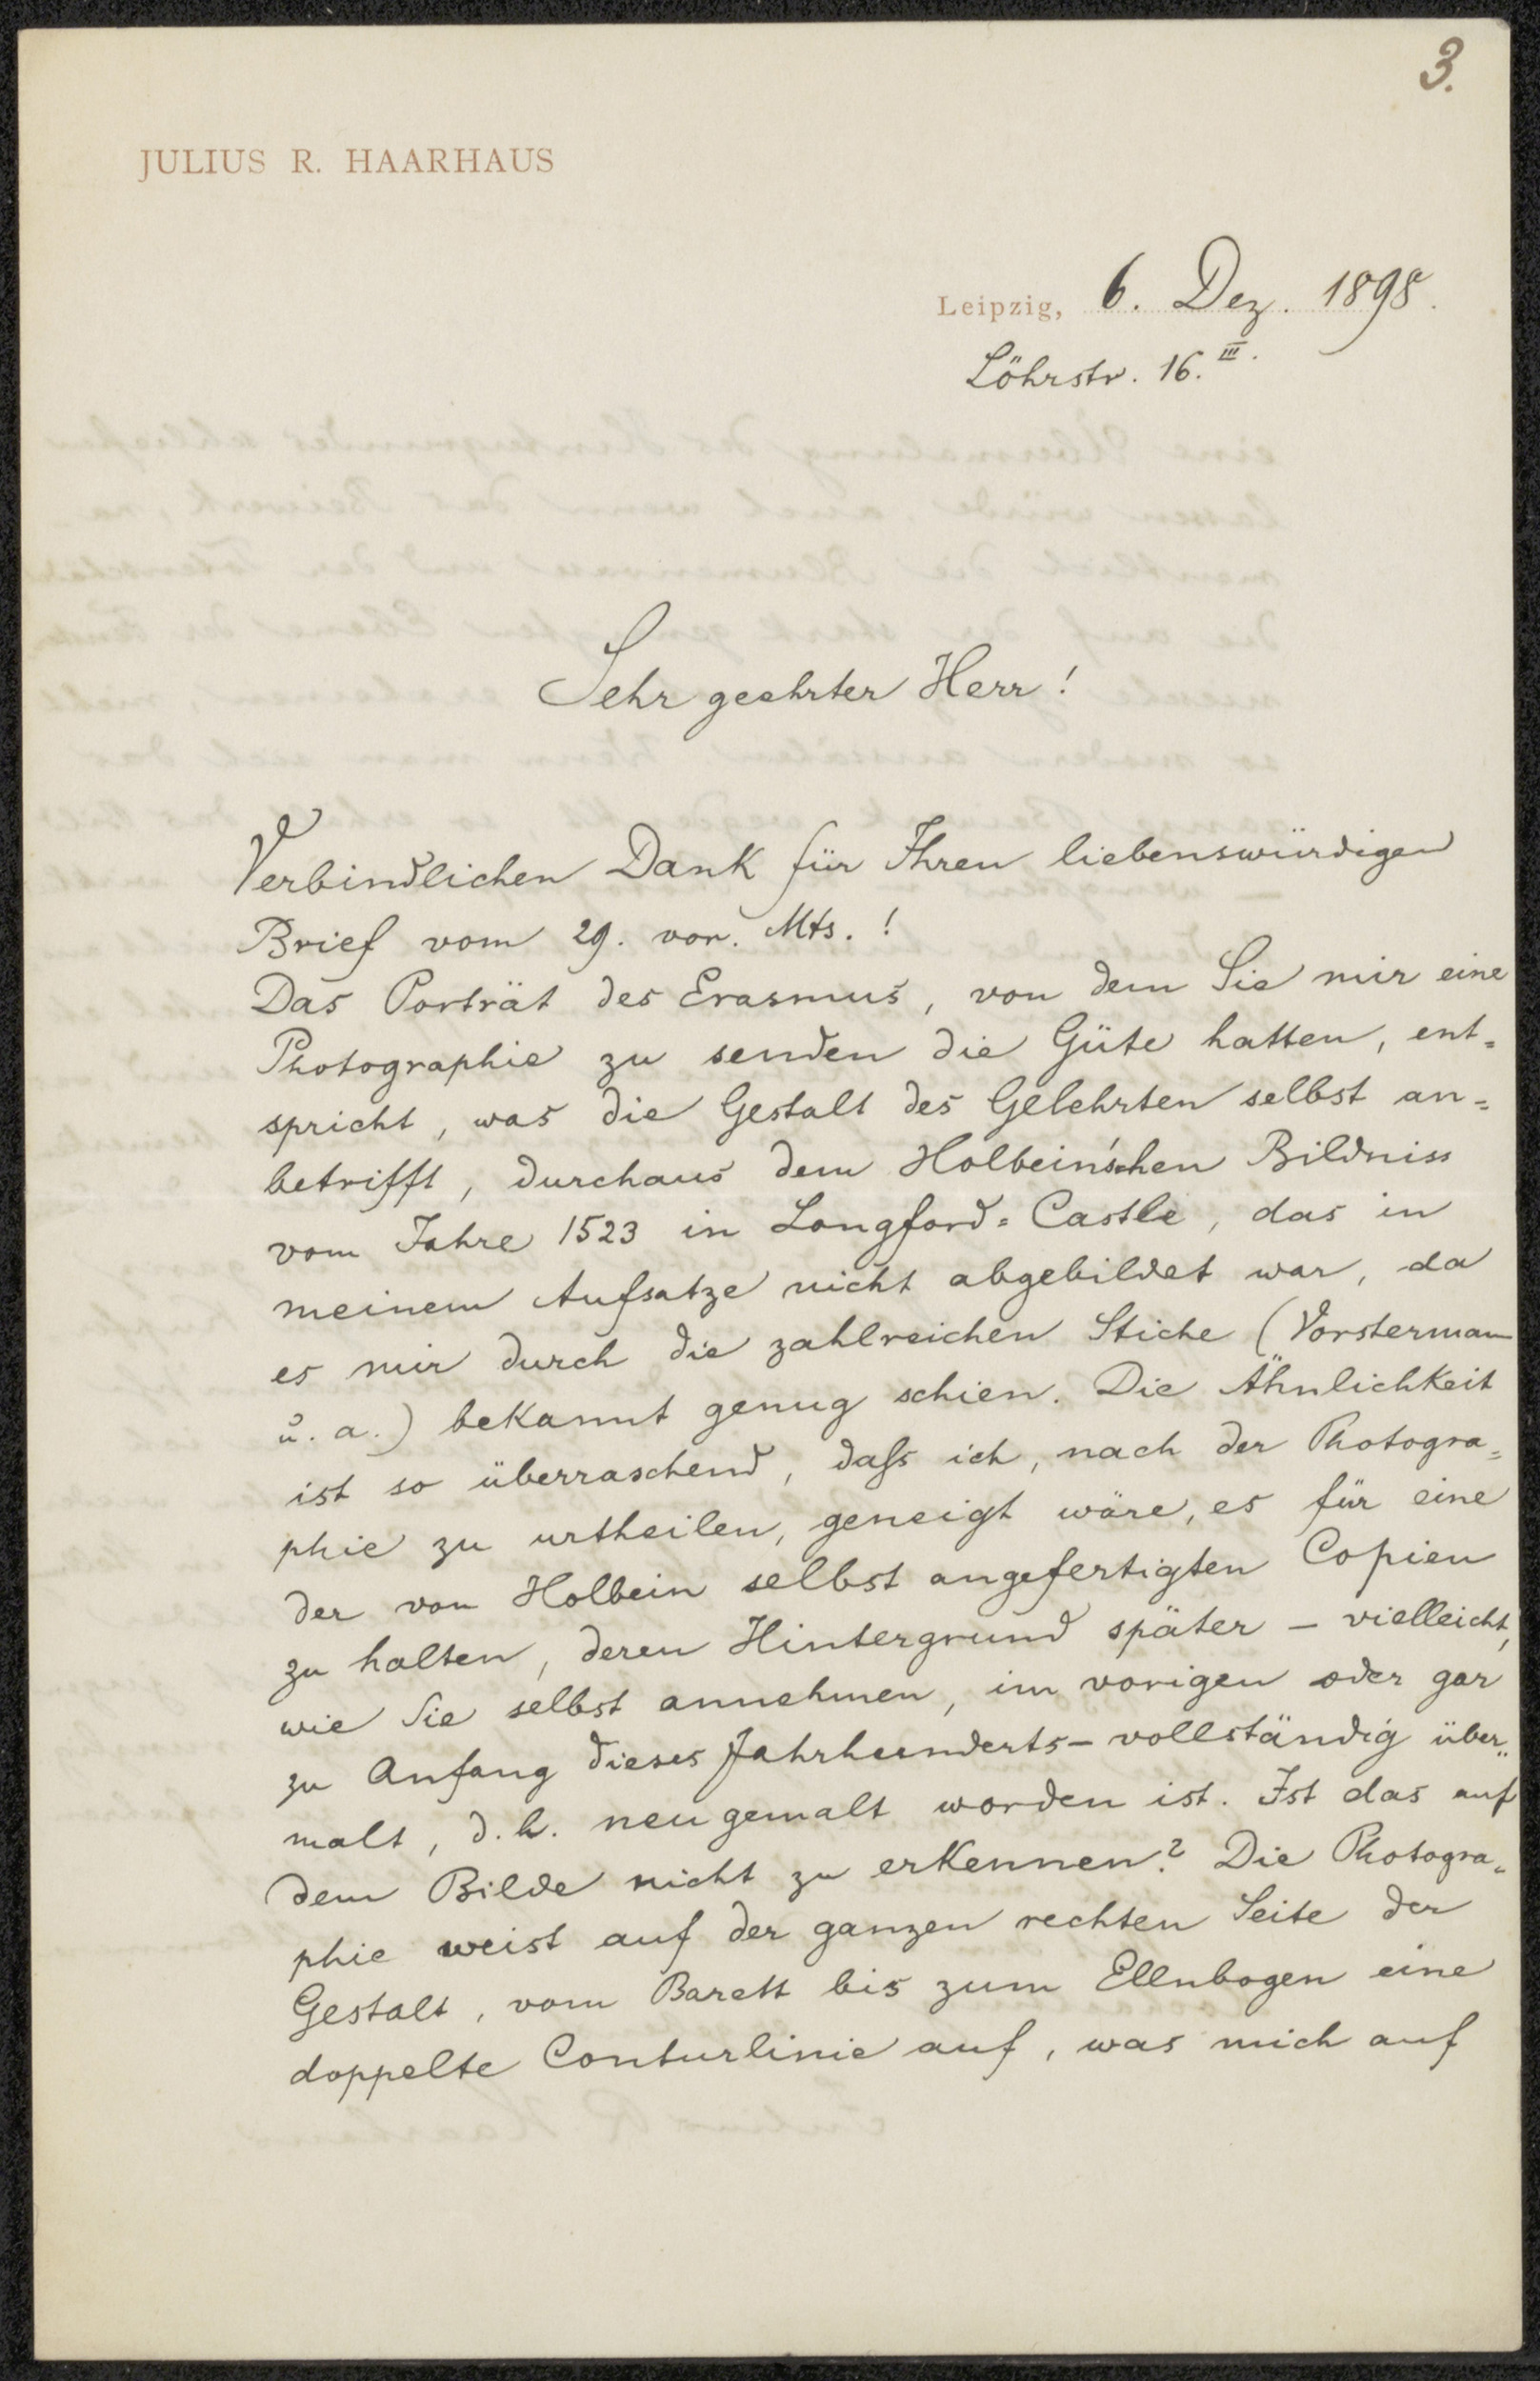 3.
JULIUS R. HAARHAUS
Leipzig, 6. Dez. 1898.
Löhrstr. 16.III.
Sehr geehrter Herr!
Verbindlichen Dank für Ihren liebenswürdigen
Brief vom 29. vor. Mts.!
Das Porträt des Erasmus, von dem Sie mir eine
Photographie zu senden die Güte hatten, ent=
spricht, was die Gestalt des Gelehrten selbst an=
betrifft, durchaus dem Holbein'schen Bildniss
vom Jahre 1523 in Longford=Castle, das in
meinem Aufsatze nicht abgebildet war, da
es mir durch die zahlreichen Stiche (Vorsterman
u. a.) bekannt genug schien. Die Ähnlichkeit
ist so überraschend, daſs ich, nach der Photogra=
phie zu urtheilen, geneigt wäre, es für eine
der von Holbein selbst angefertigten Copien
zu halten, deren Hintergrund später – vielleicht,
wie Sie selbst annehmen, im vorigen oder gar
zu Anfang dieses Jahrhunderts – vollständig über=
malt, d. h. neu gemalt worden ist. Ist das auf
dem Bilde nicht zu erkennen? Die Photogra=
phie weist auf der ganzen rechten Seite der
Gestalt, vom Barett bis zum Ellnbogen eine
doppelte Conturlinie auf, was mich auf